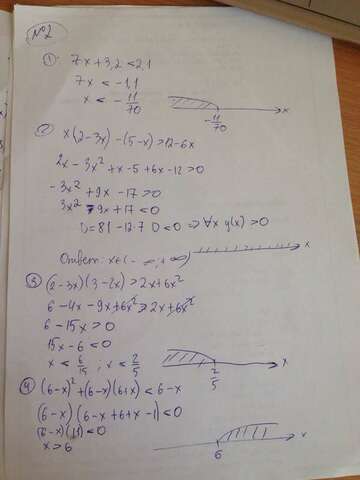 №2
① 7x+3,2<2,1
7x < -1,1
x < - 11/70
-11/70
x
② x(2-3x)-(5-x)>12-6x
2x-3x²+x-5+6x-12>0
-3x²+9x-17>0
3x²-9x+17<0
D=81-12·7 D<0 => ∀x y(x)>0
Ответ: x∈(-∞;+∞)
x
③ (2-3x)(3-2x)>2x+6x²
6-4x-9x+6x²>2x+6x²
6-15x>0
15x-6<0
x < 6/15 ; x < 2/5
2/5
x
④ (6-x)²+(6-x)(6+x)<6-x
(6-x)(6-x+6+x-1)<0
(6-x)(11)<0
x>6
6
x